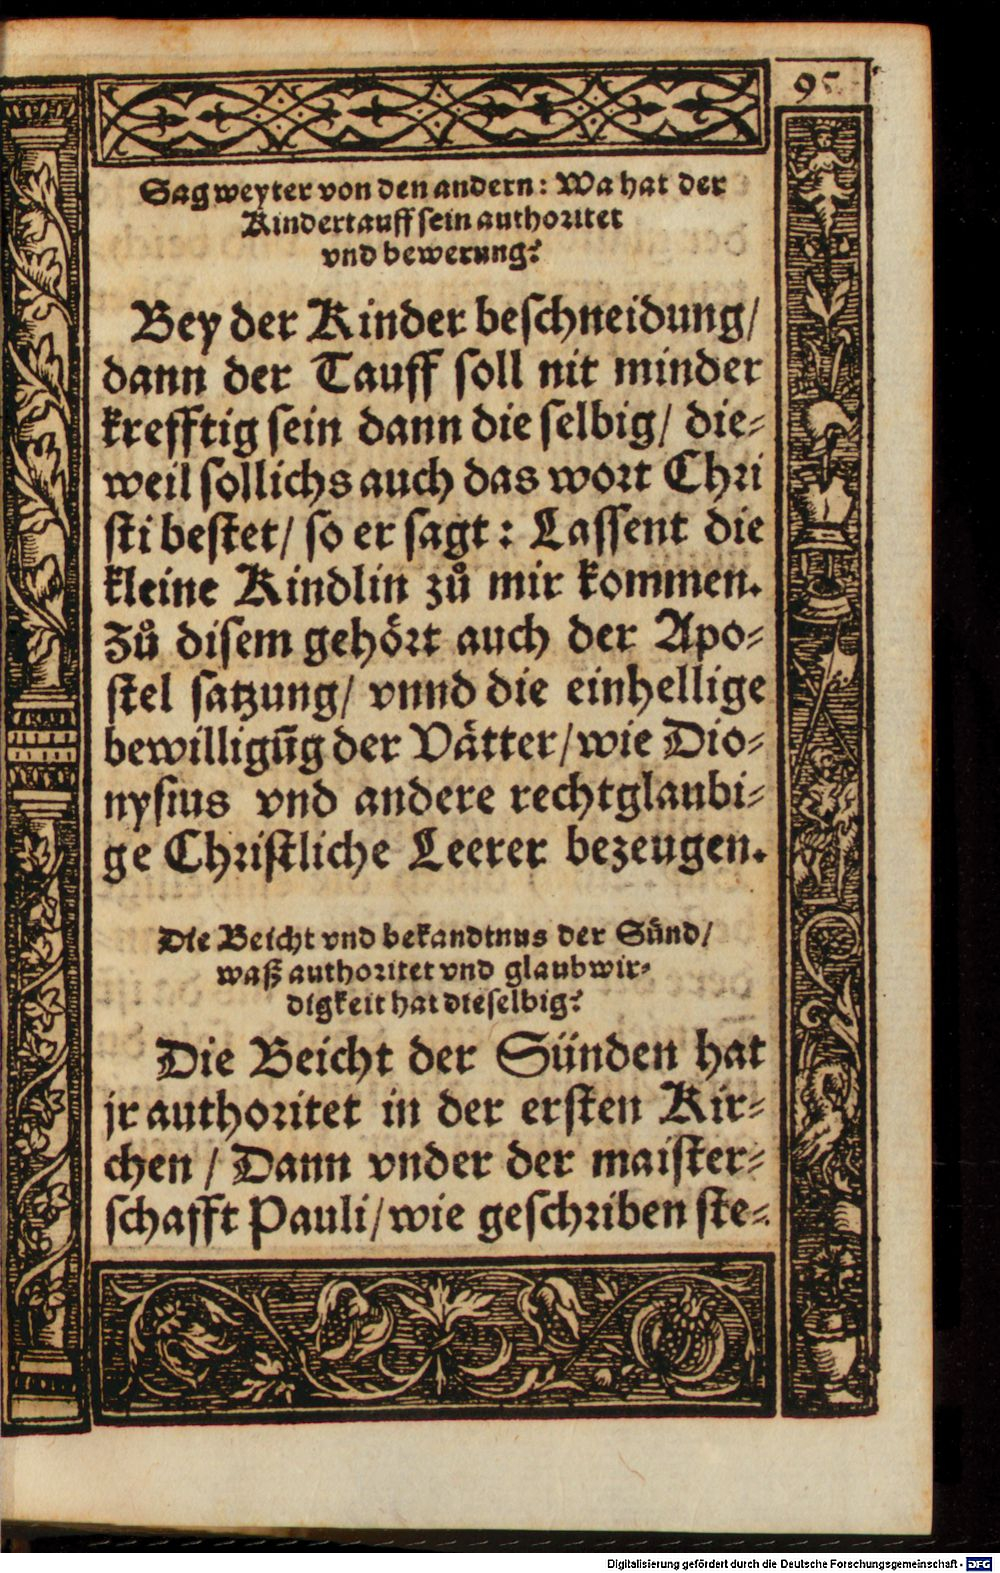 95
Sag weyter von den andern: Wa hat der
Kindertauff sein authoritet
vnd bewerung?
Bey der Kinder beschneidung/
dann der Tauff soll nit minder
krefftig sein dann die selbig/ die-
weil sollichs auch das wort Chri
sti bestet/ so er sagt: Lassent die
kleine Kindlin zů mir kommen.
Zů disem gehört auch der Apo-
stel satzung/ vnnd die einhellige
bewilligūg der Vätter/ wie Dio-
nysius vnd andere rechtglaubi-
ge Christliche Leerer bezeugen.
Die Beicht vnd bekandtnus der Sünd/
waß authoritet vnd glaubwir-
digkeit hat dieselbig?
Die Beicht der Sünden hat
jr authoritet in der ersten Kir-
chen / Dann vnder der maister-
schafft Pauli/ wie geschriben ste-
Digitalisierung gefördert durch die Deutsche Forschungsgemeinschaft - DFG